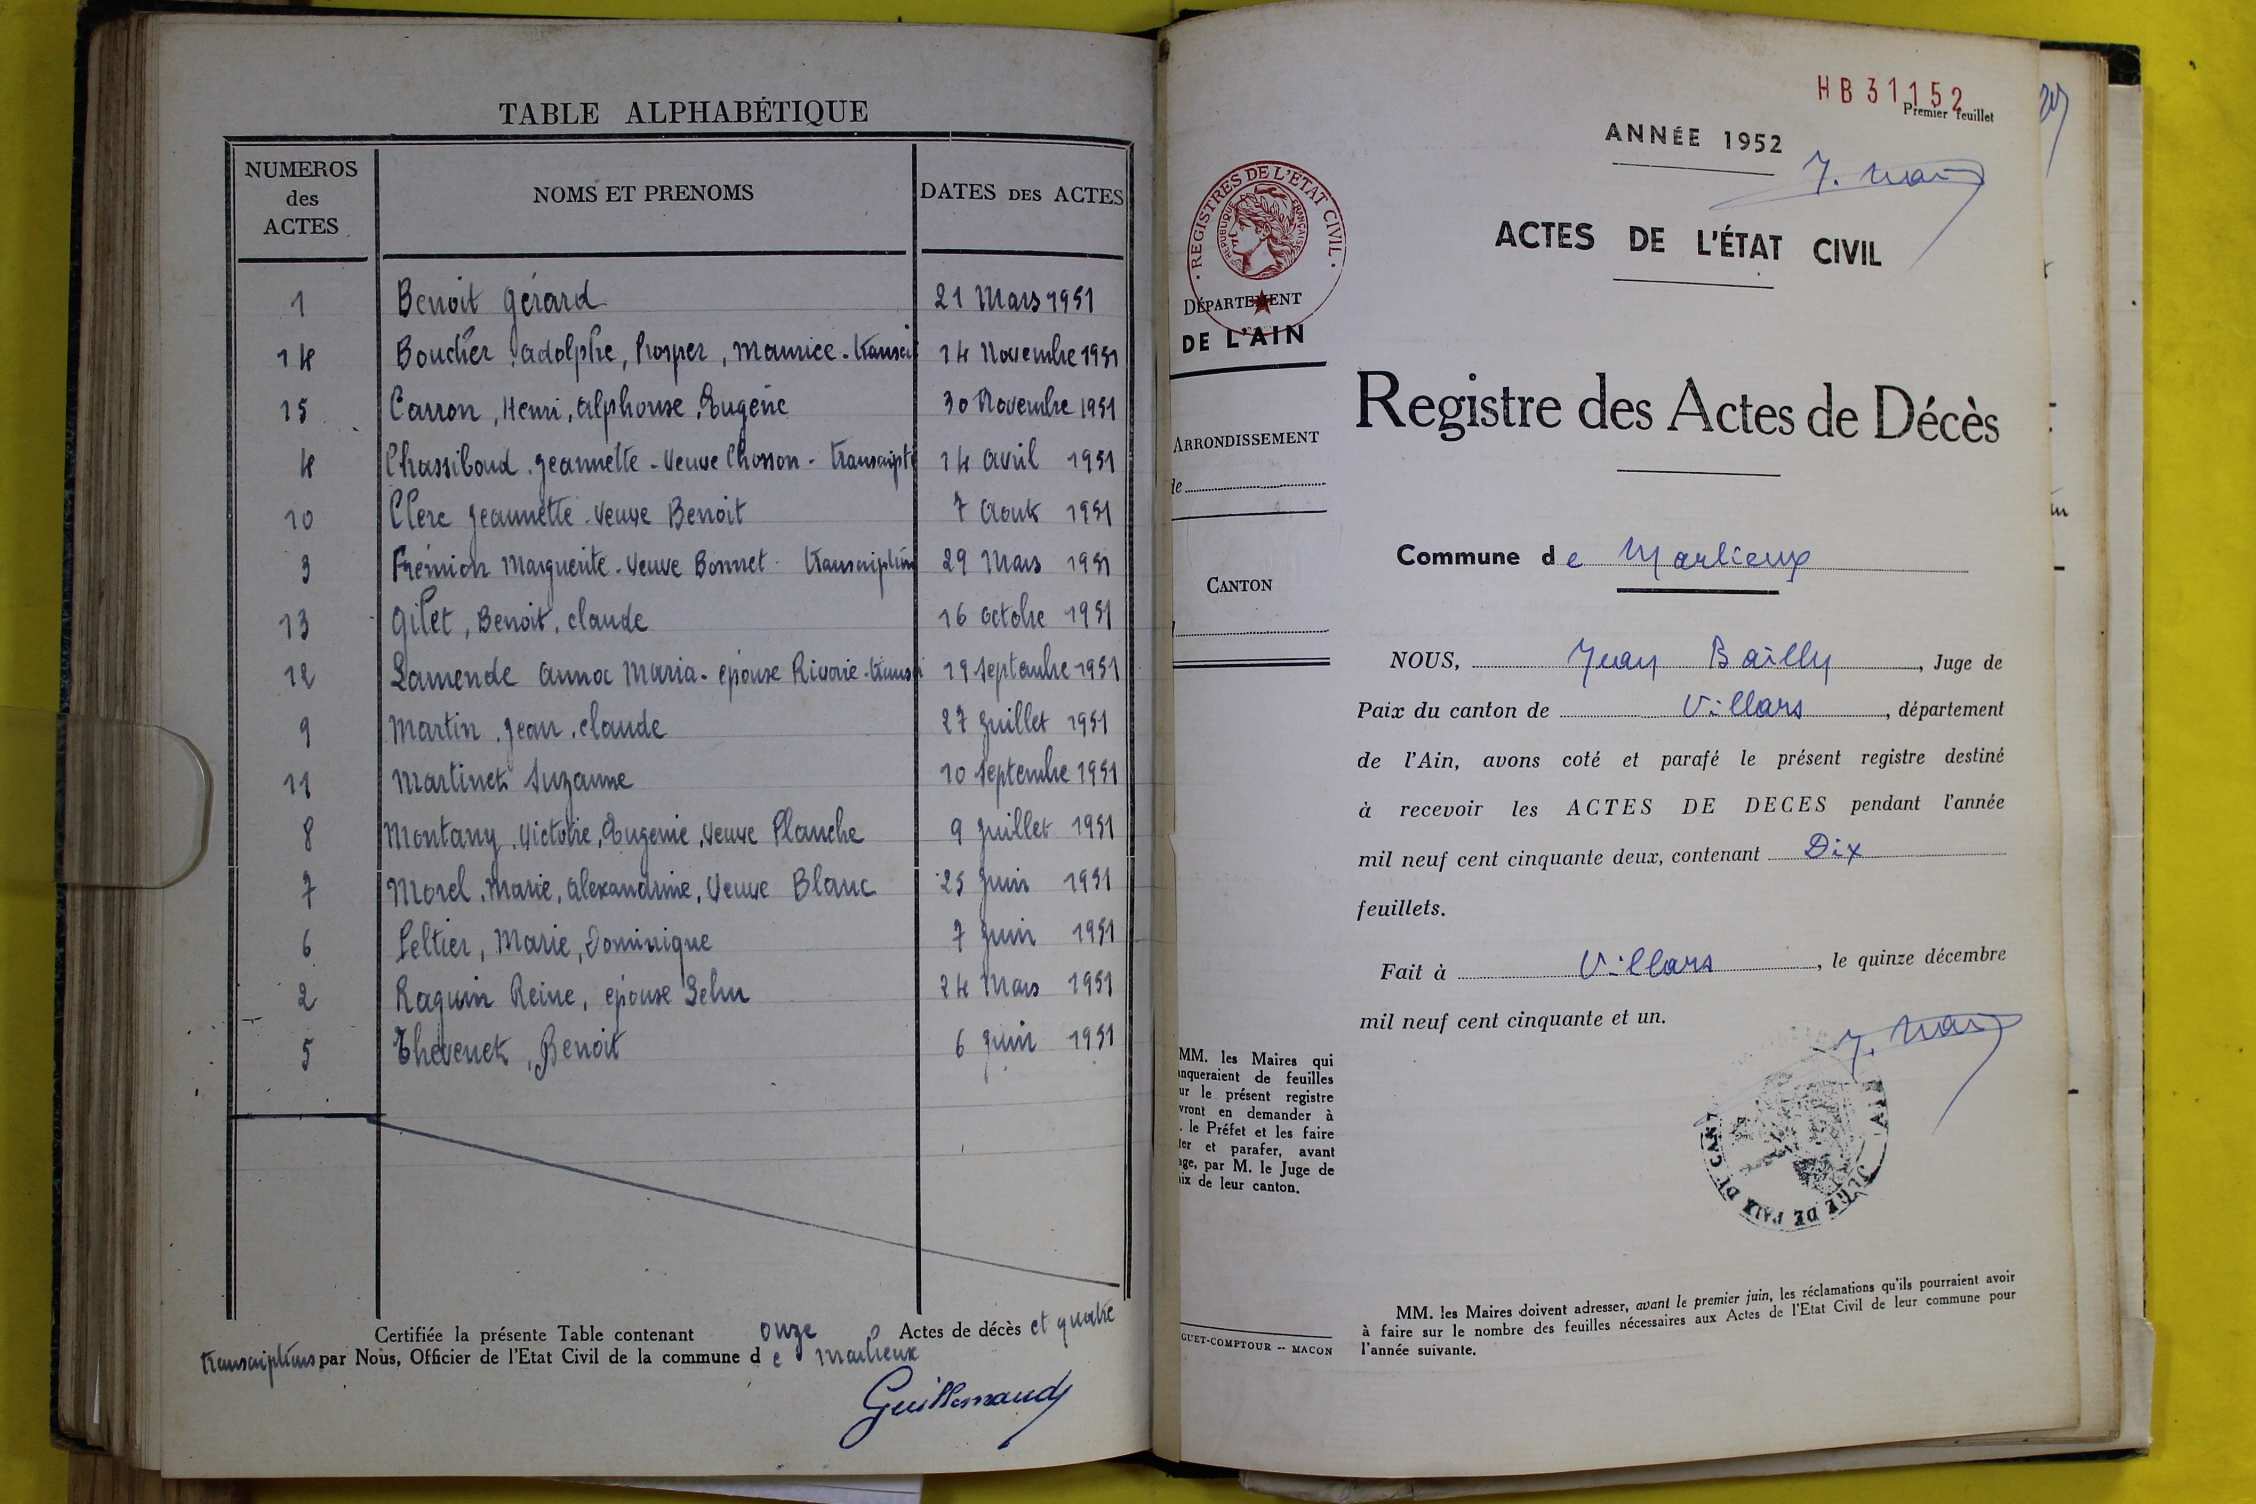 TABLE ALPHABÉTIQUE
NUMEROS des ACTES NOMS ET PRENOMS DATES DES ACTES
1 Benoit Gérard 21 Mars 1951
14 Boucher Adolphe, Prosper, Maurice - transci 14 Novembre 1951
15 Carron, Henri, Alphonse, Eugène 30 Novembre 1951
4 Chassiboud Jeannette - Veuve Chosson - transcipti 14 Avril 1951
10 Clerc Jeannette - Veuve Benoit 7 Aout 1951
3 Frémion Marguerite - Veuve Bonnet - transcription 29 Mars 1951
13 Gilet, Benoit, Claude 16 Octobre 1951
12 Lamende Anna Maria - épouse Rivoire - transci 19 Septembre 1951
9 Martin, Jean, Claude 27 Juillet 1951
11 Martinet Suzanne 10 Septembre 1951
8 Montany, Victoire, Eugenie, Veuve Planche 9 Juillet 1951
7 Morel, Marie, Alexandrine, Veuve Blanc 25 Juin 1951
6 Peltier, Marie, Dominique 7 Juin 1951
2 Raguin Reine, épouse 24 Mars 1951
5 Thevenet, Benoit 6 Juin 1951
Certifiée la présente Table contenant onze Actes de décès et quatre
transcriptions par Nous, Officier de l'Etat Civil de la commune d e Marlieux
Guillemaud
HB31152
Premier feuillet
ANNÉE 1952
ACTES DE L'ÉTAT CIVIL
REGISTRES DE L'ETAT CIVIL
REPUBLIQUE FRANÇAISE
DÉPARTEMENT
DE L'AIN
Registre des Actes de Décès
ARRONDISSEMENT
de
CANTON
Commune d e Marlieux
NOUS, Jean Bailly, Juge de
Paix du canton de Villars, département
de l'Ain, avons coté et parafé le présent registre destiné
à recevoir les ACTES DE DECES pendant l'année
mil neuf cent cinquante deux, contenant Dix
feuillets.
Fait à Villars, le quinze décembre
mil neuf cent cinquante et un.
MM. les Maires qui
nqueraient de feuilles
ur le présent registre
vront en demander à
. le Préfet et les faire
ter et parafer, avant
age, par M. le Juge de
aix de leur canton.
DE PAIX DU CANT
MM. les Maires doivent adresser, avant le premier juin, les réclamations qu'ils pourraient avoir
à faire sur le nombre des feuilles nécessaires aux Actes de l'Etat Civil de leur commune pour
l'année suivante.
GUET-COMPTOUR -- MACON